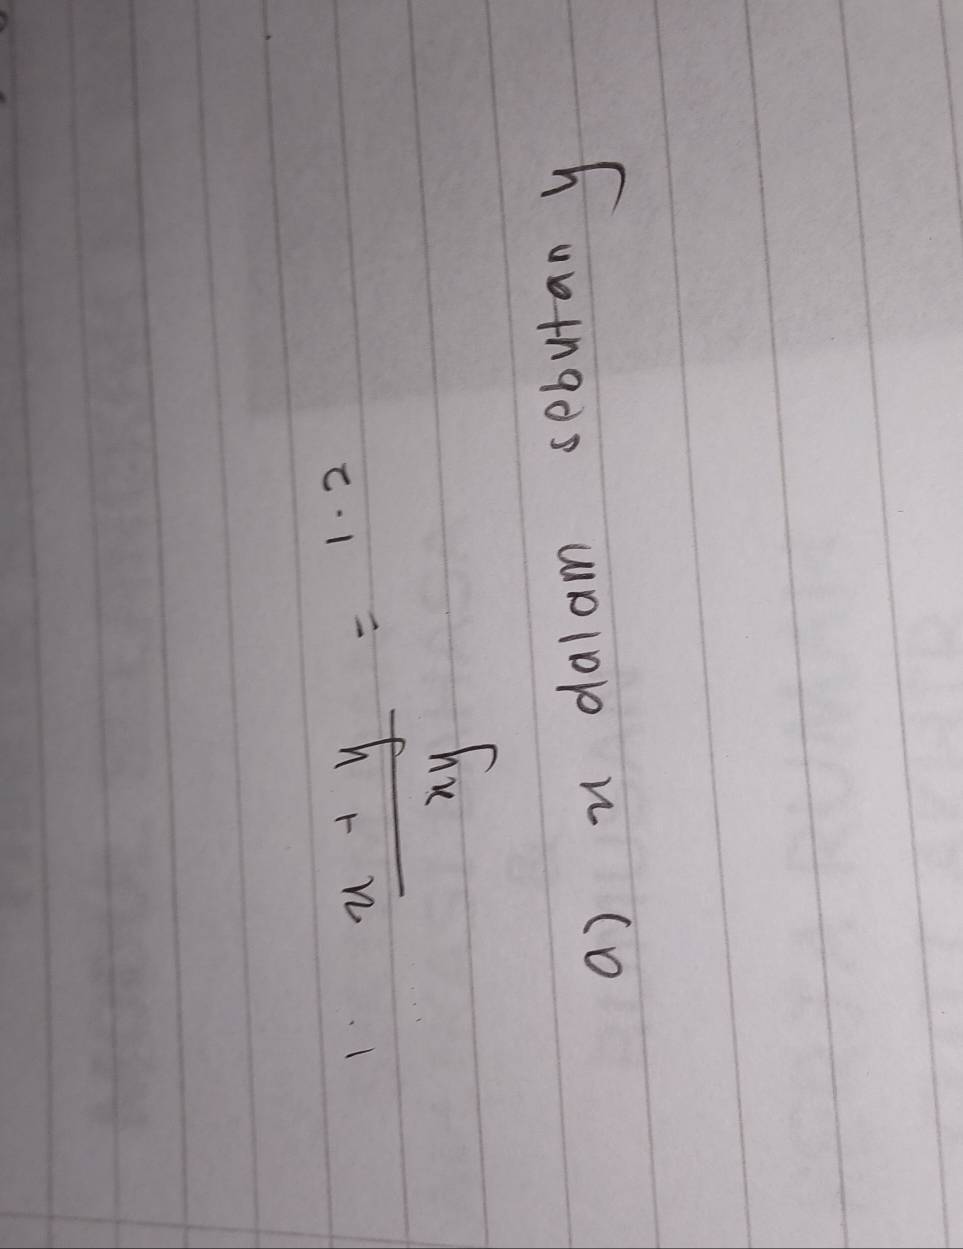 1. x + y = 1.2
xy
a) x dalam sebutan y